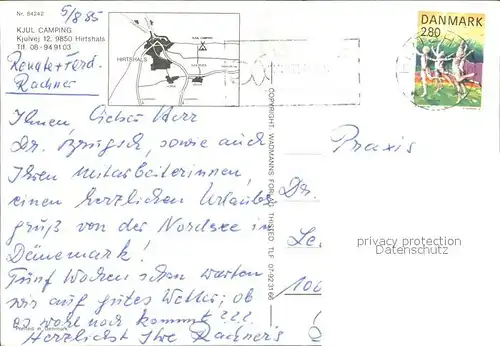 Nr. 84242
5/8 85
KJUL CAMPING
Kjulvej 12, 9850 Hirtshals
Tlf. 08-949103
Renate + Ferd.
Rachner
HIRTSHALS
DANMARK
2.80
Ihnen, lieber Herr
Dr. Brugsch, sowie auch
Ihren Mitarbeiterinnen,
einen herzlichen Urlaubs
gruß von der Nordsee in
Dänemark!
Fünf Wochen schon warten
wir auf gutes Wetter; ob
es wohl noch kommt???
Herzlichst Ihre Rachner's
Printed in Denmark
COPYRIGHT: WADMANNS FORLAG THISTED TLF. 07-923168
Praxis
Dr.
privacy protection
Datenschutz